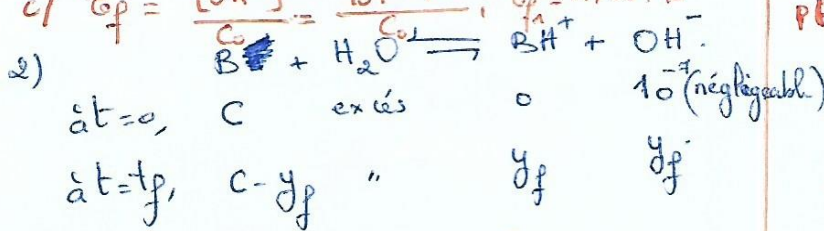 c) τf = [OH⁻]/C₀ =
2) B + H₂O ⇌ BH⁺ + OH⁻.
à t=0, C excés 0 10⁻⁷ (négligeabl.)
à t=tf, C-yf " yf yf